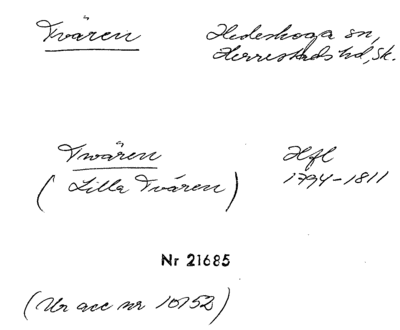 Tvären Hedeskoga sn,
Herrestads hd, Sk.
Twären Hfl
(Lilla Tvären) 1794-1811
Nr 21685
(Ur acc nr 10752)